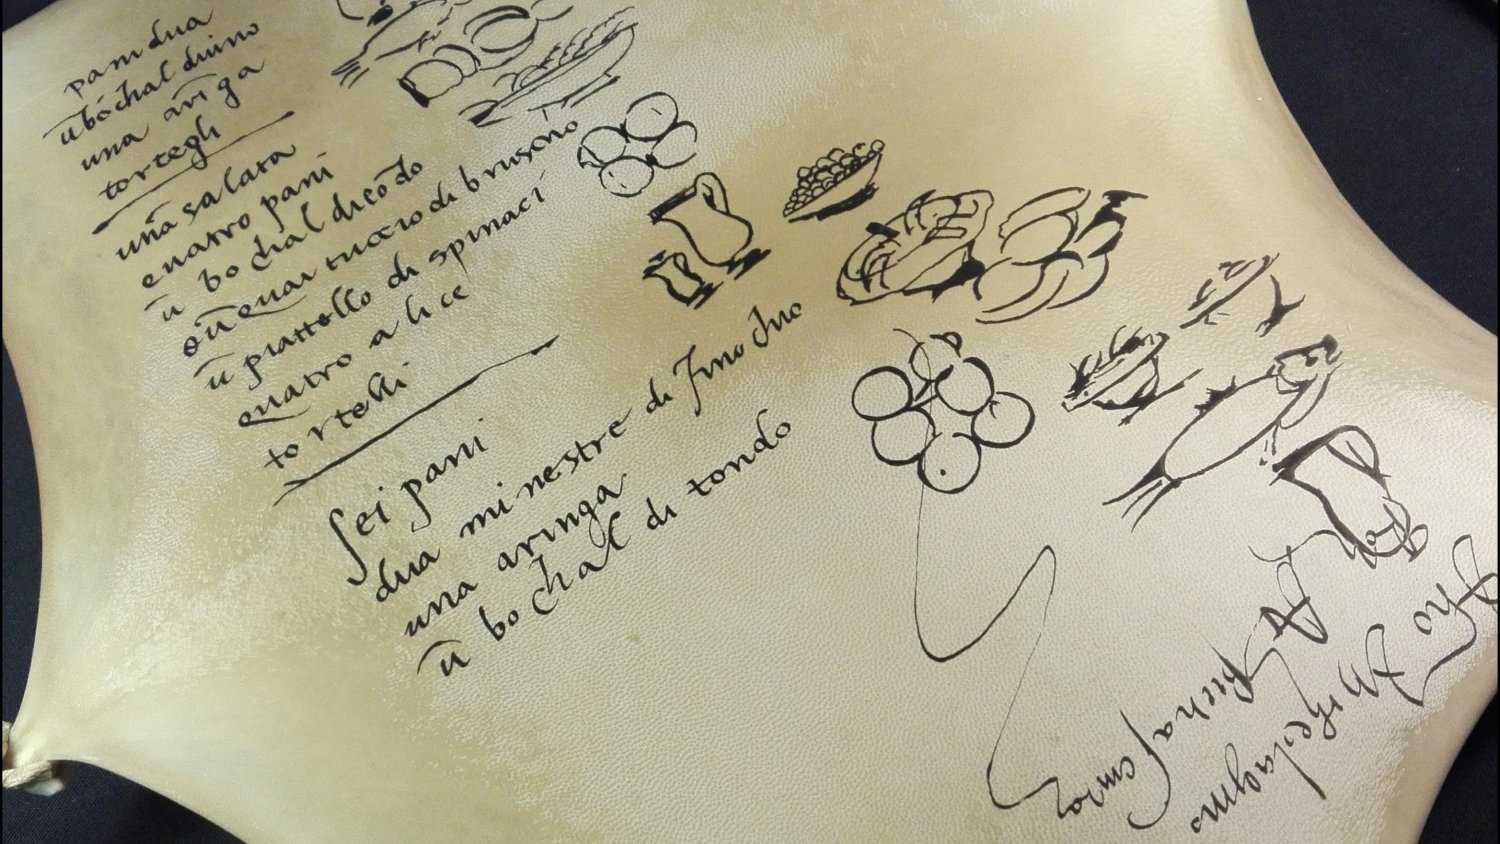 pani dua
ū bochal duino
una ariga
tortegli
una salata
quatro pani
ū bochal ditōdo
e ū quartuccio di bruscho
ū piattello di spinaci
quatro alice
tortelli
sei pani
dua minestre di finochio
una aringa
ū bochal di tondo